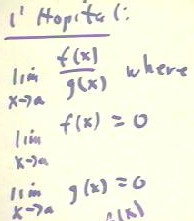 l'Hopital:
lim x→a f(x)/g(x) where
lim x→a f(x) = 0
lim x→a g(x) = 0